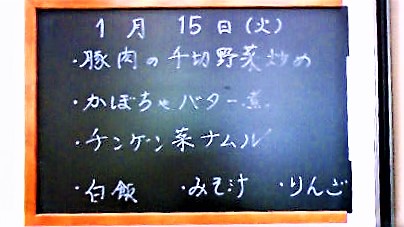 1月 15日(火)
・豚肉の千切野菜炒め
・かぼちゃバター煮
・チンゲン菜ナムル
・白飯 ・みそ汁 ・りんご